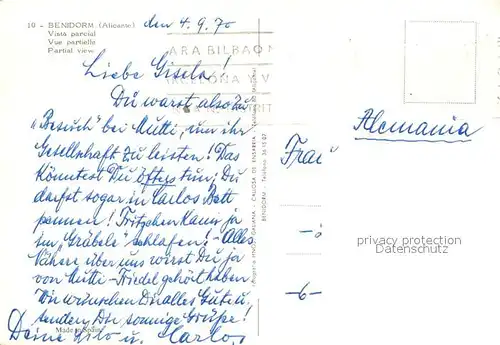 10 - BENIDORM (Alicante)
Vista parcial
Vue partielle
Partial view
den 4.9.70
ARA BILBAO
Liebe Gisela!
Du warst also zu
"Besuch" bei Mutti, um ihr
Gesellschaft zu leisten! Das
könntest Du öfters tun; Du
darfst sogar in Carlos Bett
pennen! Fritzchen kann ja
im "Gräbele" schlafen! - Alles
Nähere über uns wirst Du ja
von Mutti - Friedel gehört haben.
Wir wünschen Dir alles Gute u.
senden Dir sonnige Grüße!
Deine u. Carlos
Made in Spain
BENIDORM - Teléfono
Alemania
Frau
-6-
privacy protection
Datenschutz